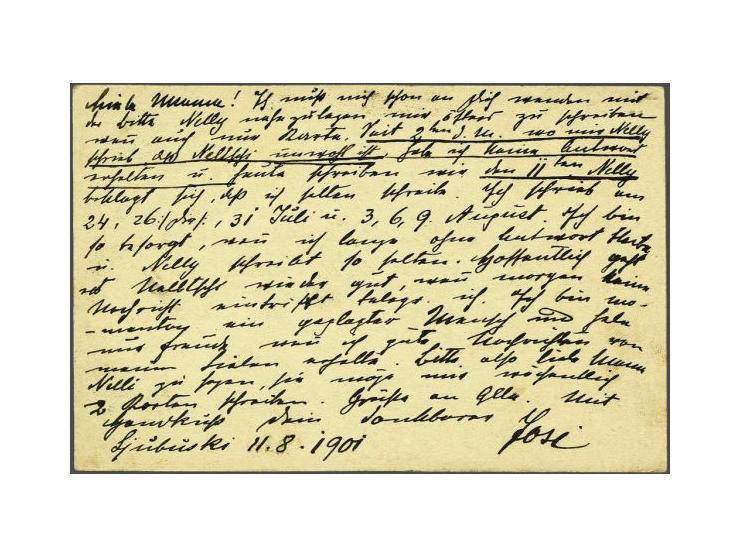 Liebe Mama! Ich muß mich schon an Dich wenden mit
der bitte Nelly nahezulegen, mir öfters zu schreiben
wen auch nur Karte. Seit 2ten d. M. wo mir Nelly
schrieb, daß unwohl ist, habe ich keine Antwort
erhalten u. heute schreiben wir den 11ten, Nelly
beklagt sich, daß ich selten schreibe. Ich schrieb am
24, 26, 31 Juli u. 3, 6, 9. August. Ich bin
so besorgt, wen ich lange ohne Antwort bleibe
u. Nelly schreibt so selten. Hoffentlich geht
es wieder gut, wen morgen keine
Nachricht eintrifft telegr. ich. Ich bin mo-
-mentan ein geplagter Mensch und habe
nur Freude wen ich gute Nachrichten von
meinen Lieben erhalte. Bitte also liebe Mama
Nelli zu sagen, sie möge mir wöchentlich
2 Karten schreiben. Grüße an Alle. Mit
Handkuß Dein dankbarer Josi
Ljubuski 11.8.1901